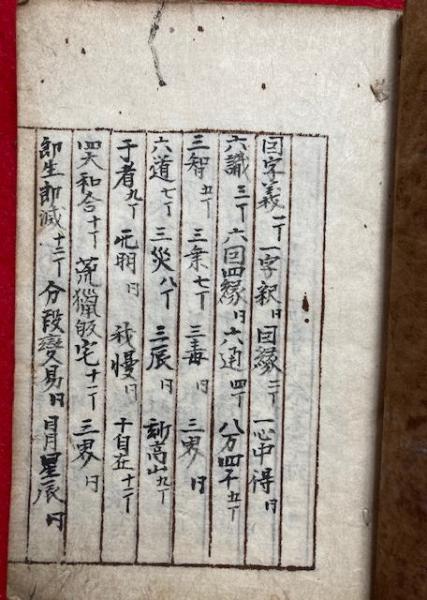 因字義 一丁 一字釈 同 因縁 二丁 一心中得 同
六識 三丁 六因四縁 同 六通 四丁 八万四千 五丁
三智 五丁 三業 七丁 三毒 同 三界 同
六道 七丁 三災 八丁 三辰 同 高山 九丁
于者 九丁 无明 同 我慢 同 自在 十二丁
四大和合 十丁 荒猟 宅 十二丁 三界 同
即生即滅 十二丁 分段變易 同 日月星辰 同